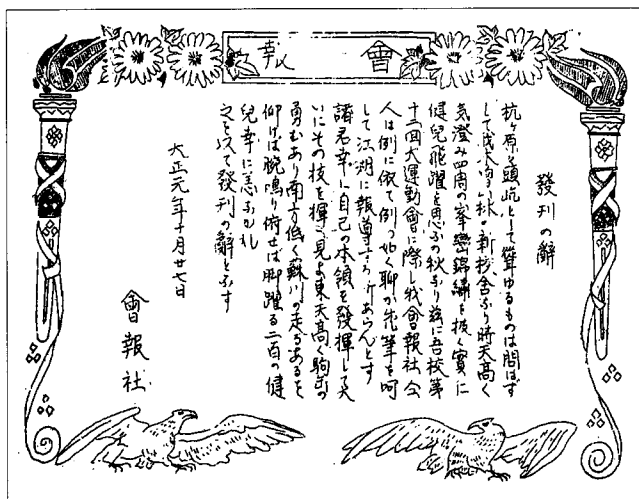 會報
發刊の辭
原頭屹として聳ゆるものは問はず
して我 新校舎なり時天高く
気澄み四周の峯巒錦繍を抜く實に
健兒飛躍を思ふの秋なり茲に吾校第
十二回大運動會に際し我會報社
人は例に依て例の如く聊か禿筆を呵
して江湖に報導する所あらんとす
諸君幸に自己の本領を發揮して大
いにその技を揮へ見よ東天高く駒岳の
勇むあり南方低く蘇川の走るあるを
仰げば腕鳴り俯せば脚躍る二百の健
兒幸に恙なかれ
之を以て發刊の辭となす
大正元年十月廿七日
會報社